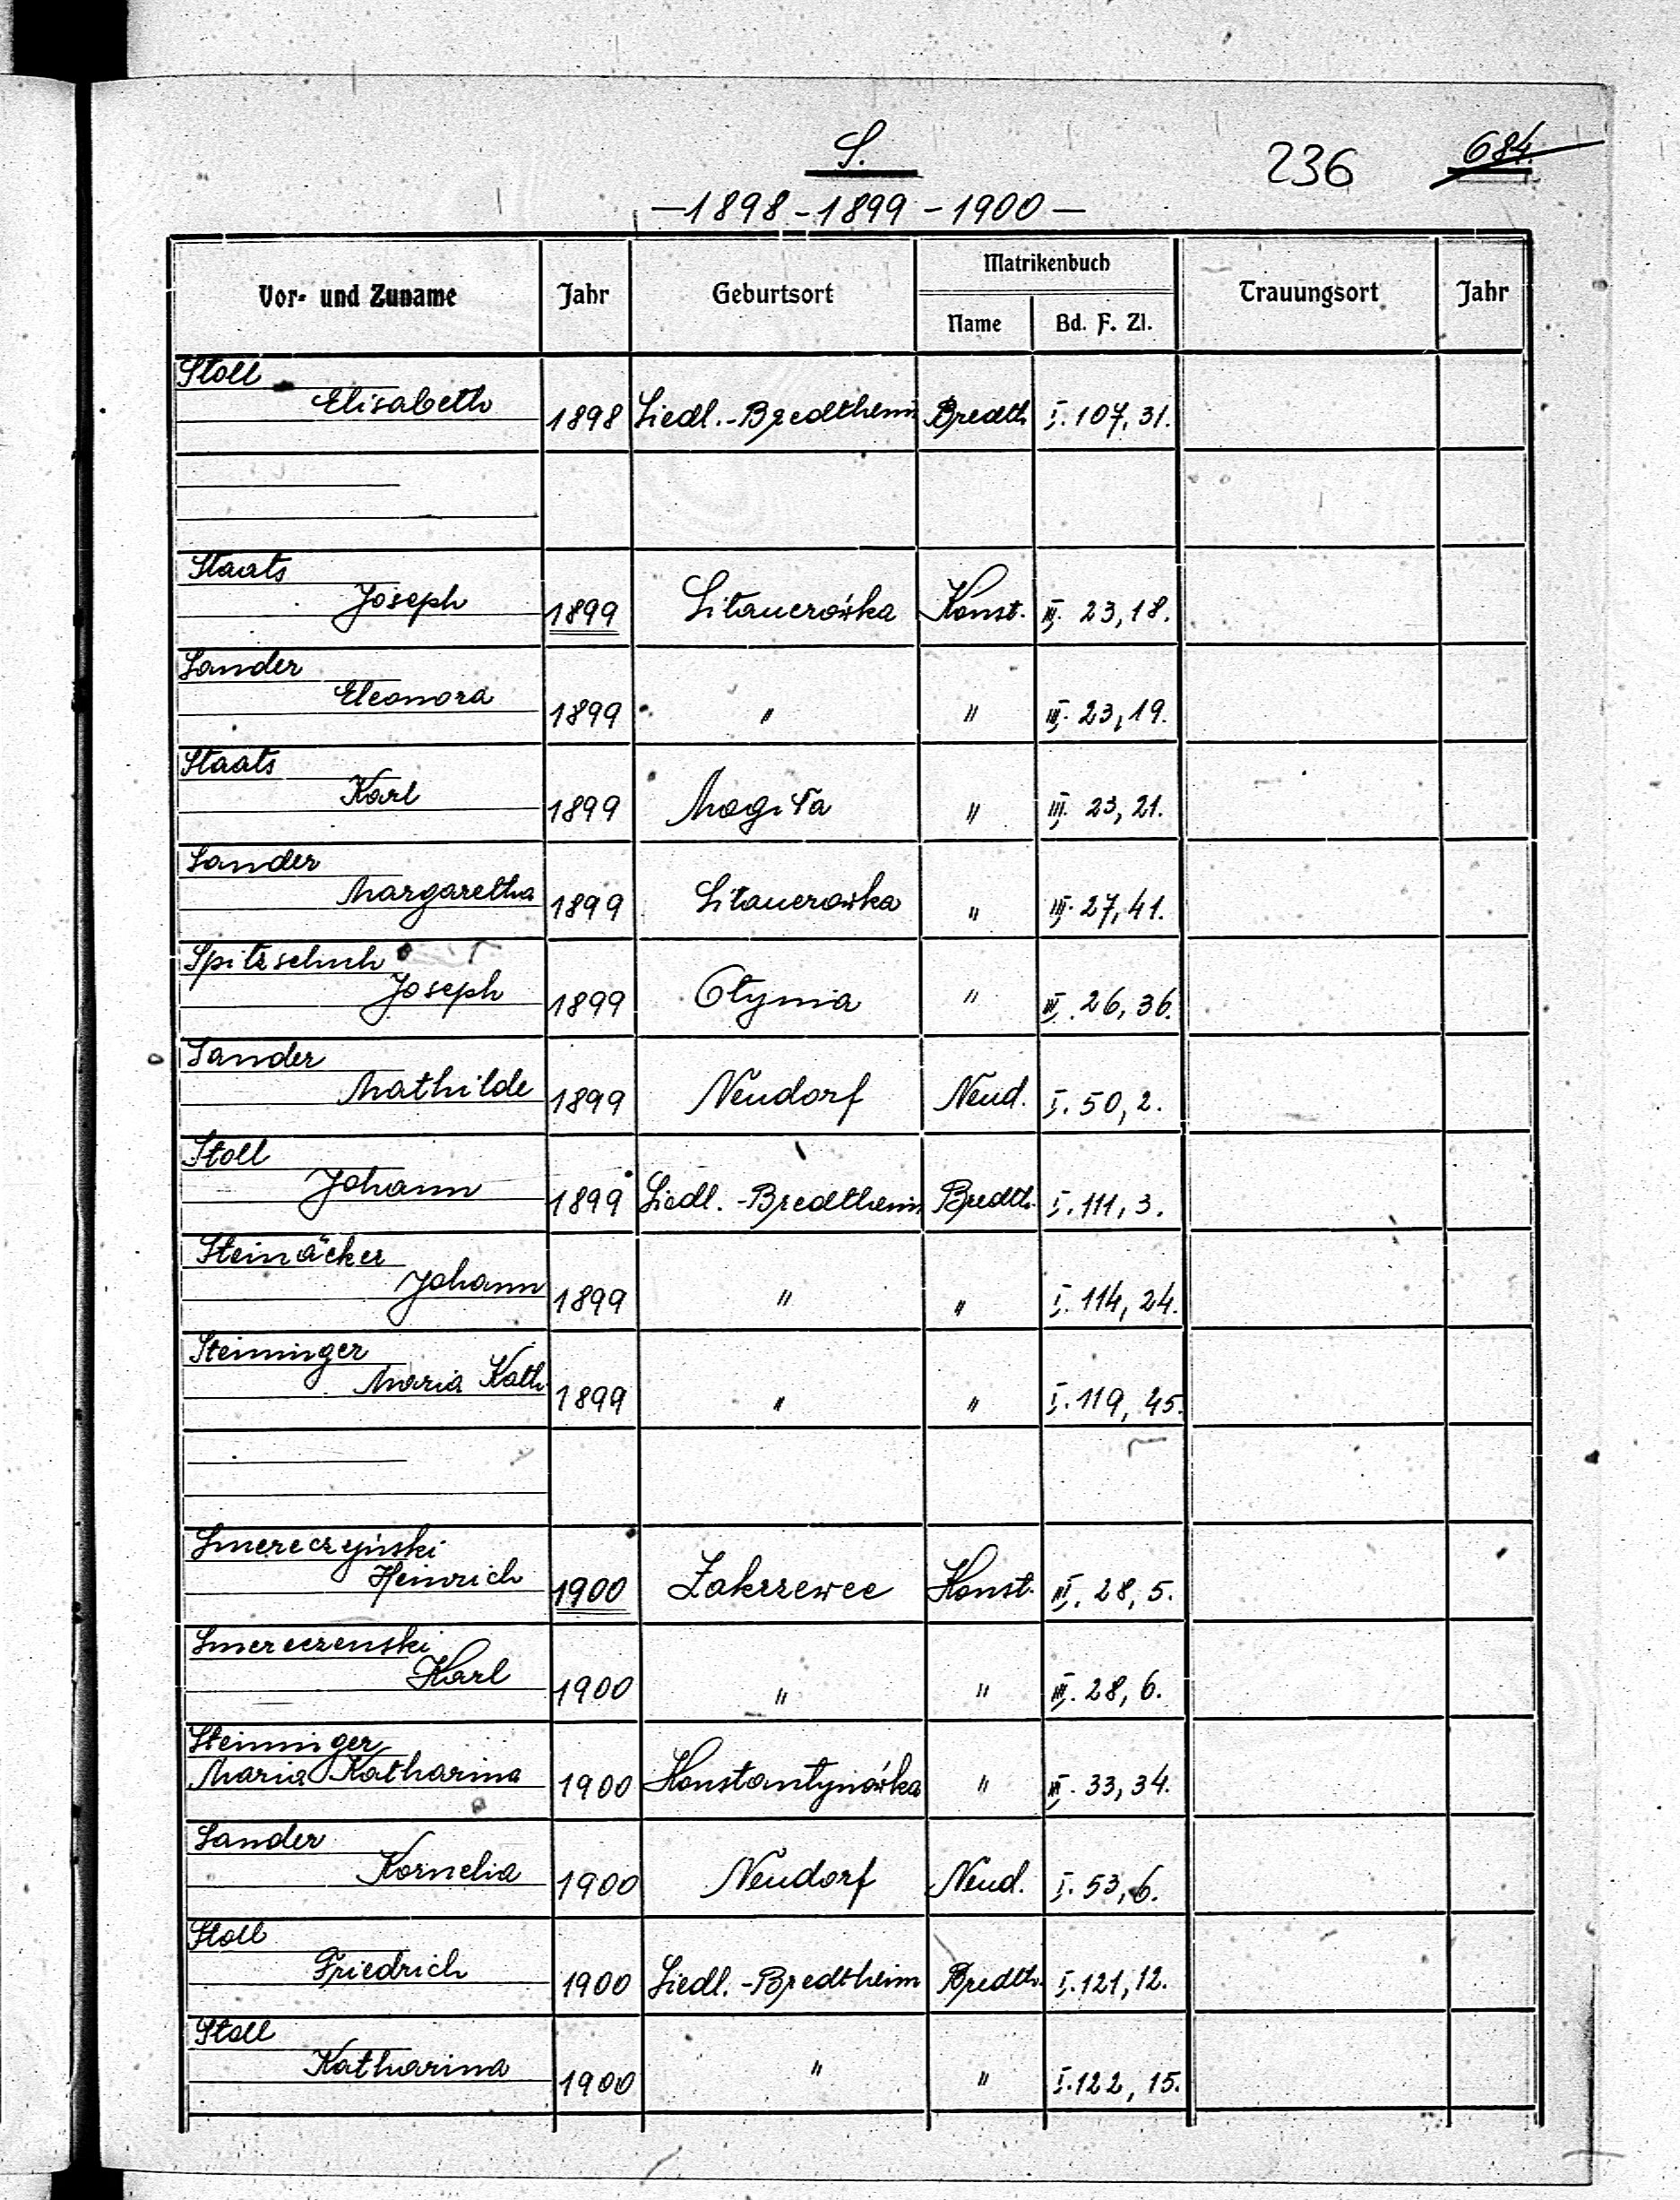 S.
236 684.
—1898-1899-1900—
Vor- und Zuname Jahr Geburtsort Matrikenbuch Trauungsort Jahr
Name Bd. F. Zl.
Stoll
Elisabeth 1898 Siedl.-Bredtheim Bredth. I. 107, 31.
Staats
Joseph 1899 Sitauerówka Konst. III. 23, 18.
Sander
Eleonora 1899 " " III. 23, 19.
Staats
Karl 1899 Mogiła " III. 23, 21.
Sander
Margaretha 1899 Sitauerowka " III. 27, 41.
Spitzschuh
Joseph 1899 Otynia " III. 26, 36.
Sander
Mathilde 1899 Neudorf Neud. I. 50, 2.
Stoll
Johann 1899 Siedl.-Bredtheim Bredth. I. 111, 3.
Steinäcker
Johann 1899 " " I. 114, 24.
Steininger
Maria Kath. 1899 " " I. 119, 45.
Smereczyński
Heinrich 1900 Zakrzewce Konst. III. 28, 5.
Smereczenski
Karl 1900 " " III. 28, 6.
Steininger
Maria Katharina 1900 Konstantynówka " III. 33, 34.
Sander
Kornelia 1900 Neudorf Neud. I. 53, 6.
Stoll
Friedrich 1900 Siedl.-Bredtheim Bredth. I. 121, 12.
Stoll
Katharina 1900 " " I. 122, 15.